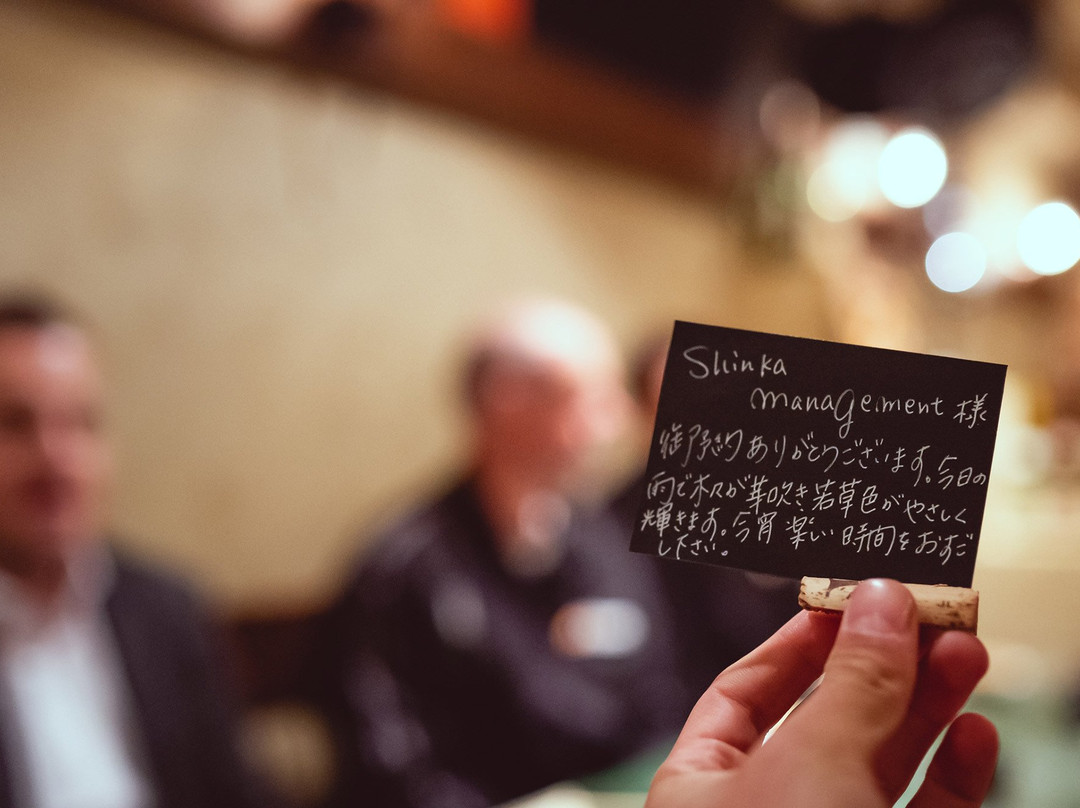 Shinka
management 様
御予約ありがとうございます。今日の
雨で木々が芽吹き若草色がやさしく
輝きます。今宵楽しい時間をおすご
しださい。